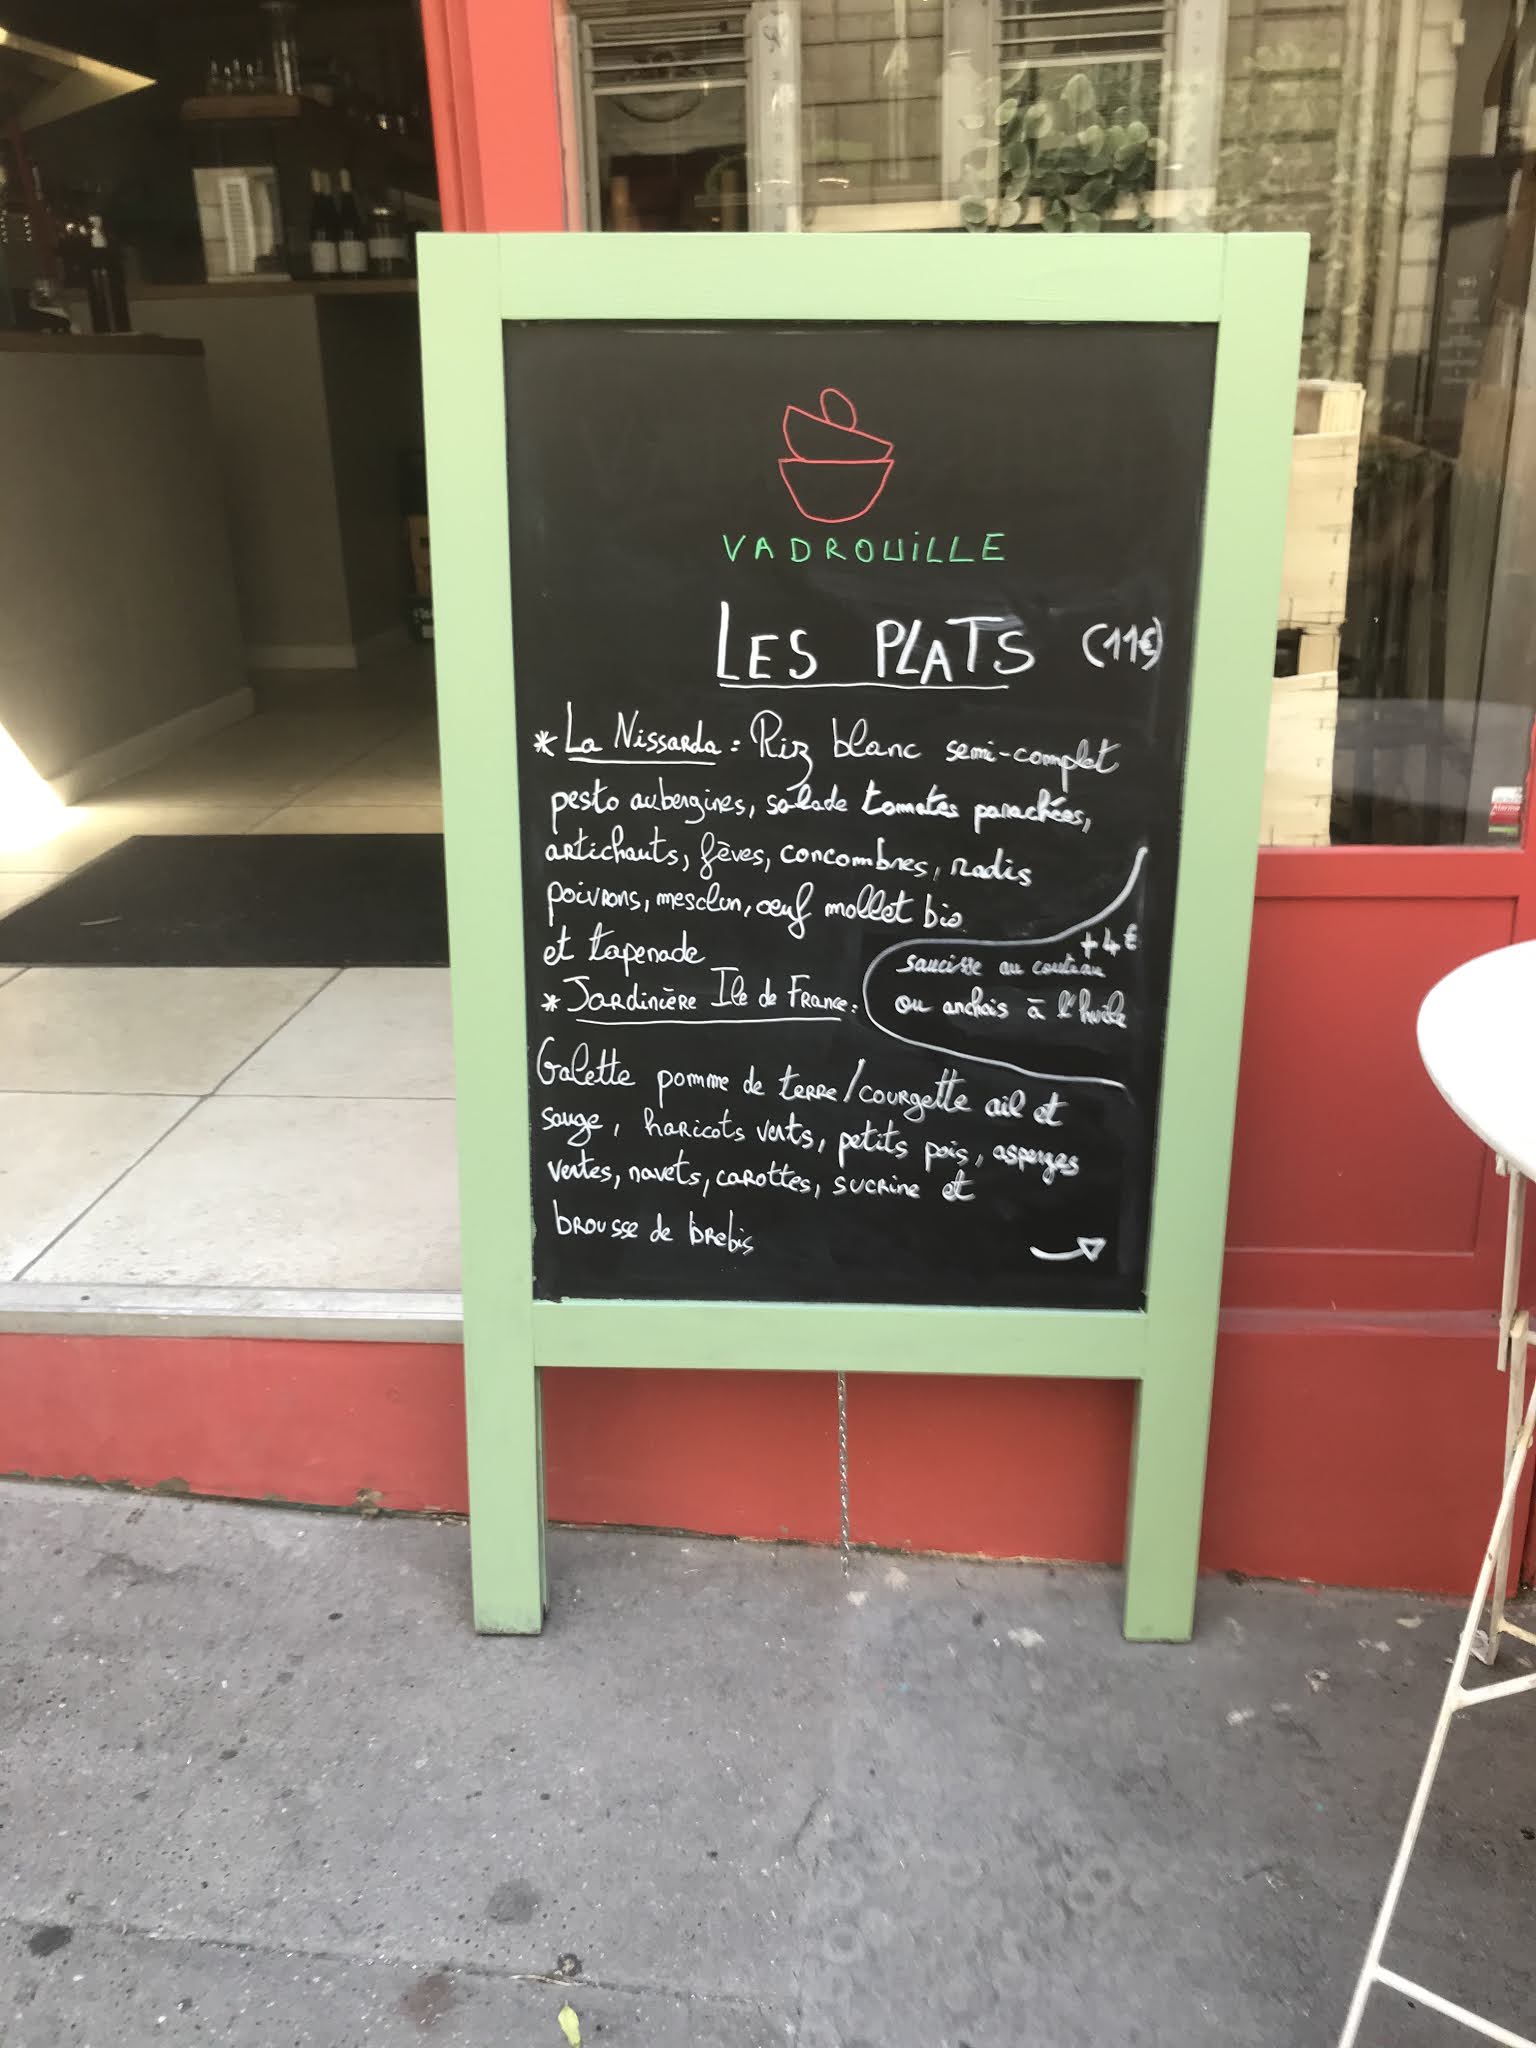 VADROUILLE
LES PLATS (11€)
* La Nissarda : Riz blanc semi-complet
pesto aubergines, salade tomates panachées,
artichauts, fèves, concombres, radis
poivrons, mesclun, œuf mollet bio
et tapenade
+4€
saucisse au couteau
ou anchois à l'huile
* Jardinière Ile de France :
Galette pomme de terre/courgette ail et
sauge, haricots verts, petits pois, asperges
vertes, navets, carottes, sucrine et
brousse de brebis